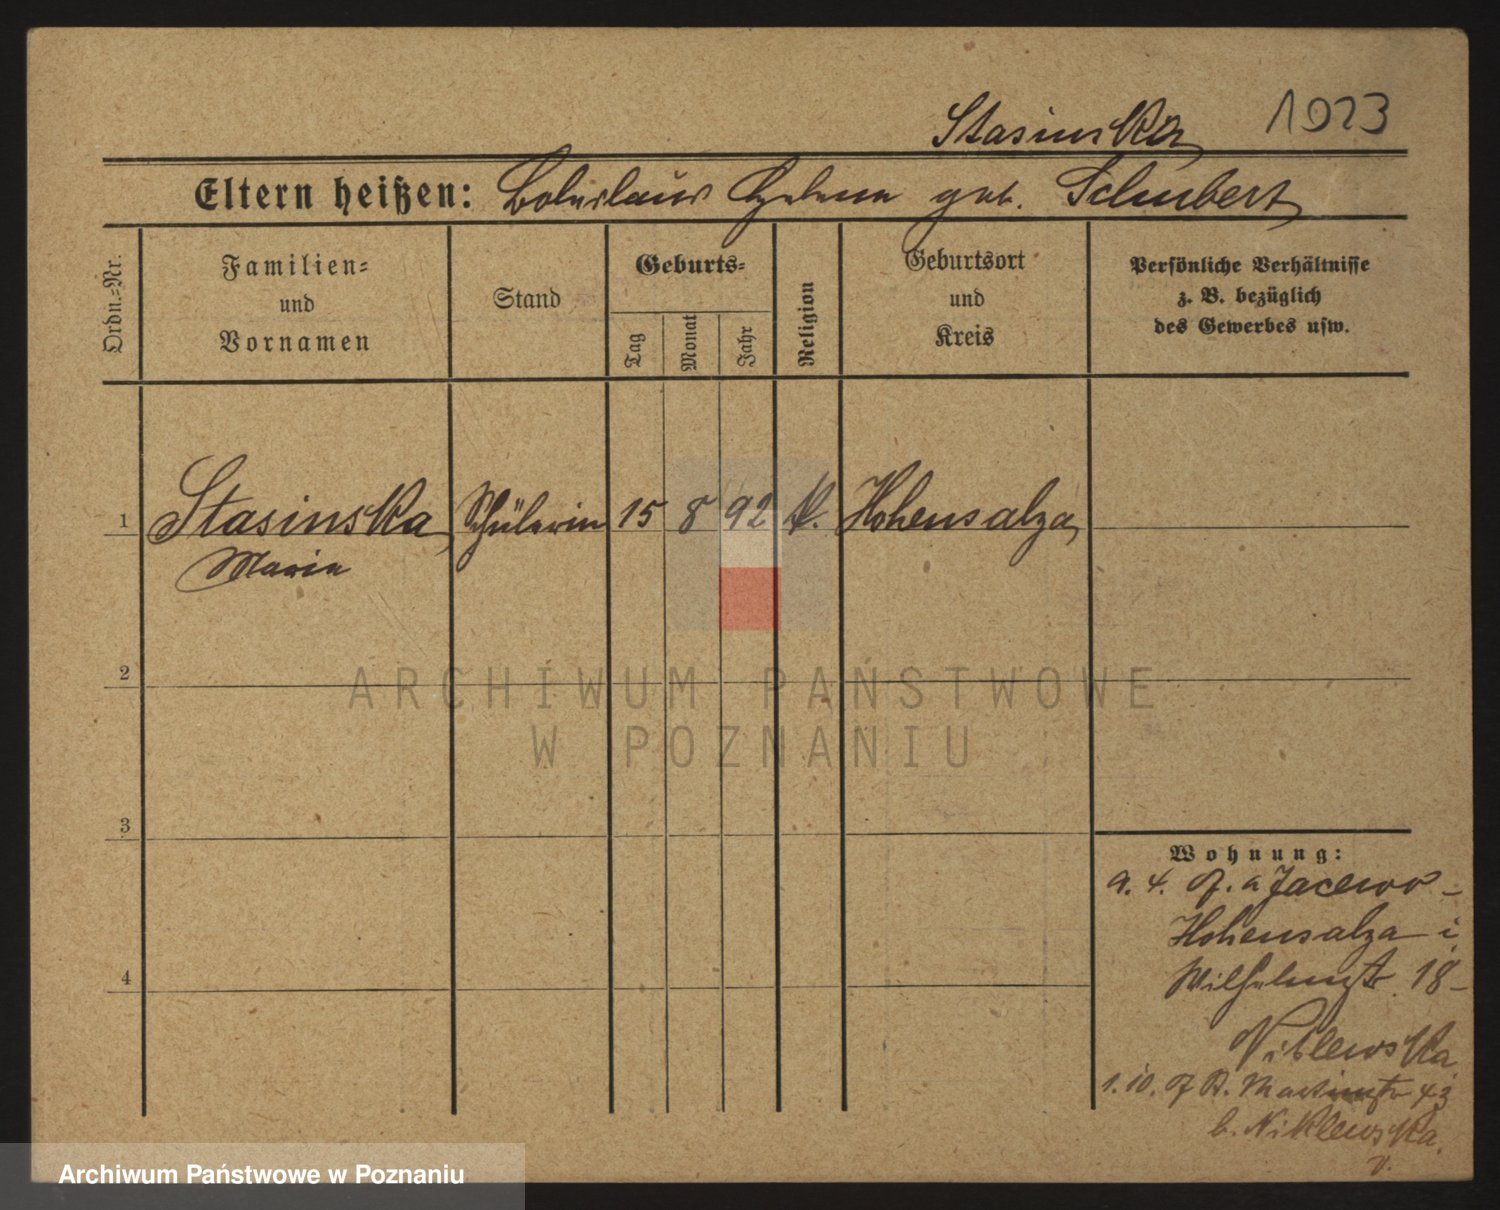 Stasinska 1923
Eltern heißen: Boleslaus Helena geb. Schubert
Ordn.-Nr.
Familien-
und
Vornamen
Stand
Geburts-
Tag
Monat
Jahr
Religion
Geburtsort
und
Kreis
Persönliche Verhältnisse
z. B. bezüglich
des Gewerbes usw.
1 Stasinska Schülerin 15 8 92 k. Hohensalza
Maria
2
3
4
Wohnung:
9. 4. a Jacewo -
Hohensalza i
Wilhelmstr. 18 -
Niklewska
1. 10. St. Martinstr 43
b. Niklewska.
ARCHIWUM PAŃSTWOWE
W POZNANIU
Archiwum Państwowe w Poznaniu